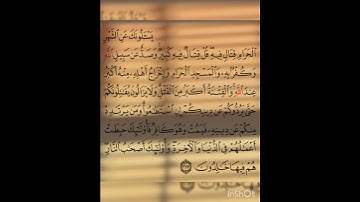 يَسْـَٔلُونَكَ عَنِ ٱلشَّهْرِ
ٱلْحَرَامِ قِتَالٍ فِيهِ قُلْ قِتَالٌ فِيهِ كَبِيرٌ وَصَدٌّ عَن سَبِيلِ ٱللَّهِ
وَكُفْرٌۢ بِهِۦ وَٱلْمَسْجِدِ ٱلْحَرَامِ وَإِخْرَاجُ أَهْلِهِۦ مِنْهُ أَكْبَرُ
عِندَ ٱللَّهِ وَٱلْفِتْنَةُ أَكْبَرُ مِنَ ٱلْقَتْلِ وَلَا يَزَالُونَ يُقَٰتِلُونَكُمْ
حَتَّىٰ يَرُدُّوكُمْ عَن دِينِكُمْ إِنِ ٱسْتَطَٰعُوا۟ وَمَن يَرْتَدِدْ
مِنكُمْ عَن دِينِهِۦ فَيَمُتْ وَهُوَ كَافِرٌ فَأُو۟لَٰٓئِكَ حَبِطَتْ
أَعْمَٰلُهُمْ فِى ٱلدُّنْيَا وَٱلْـَٔاخِرَةِ وَأُو۟لَٰٓئِكَ أَصْحَٰبُ ٱلنَّارِ
هُمْ فِيهَا خَٰلِدُونَ
InShOt